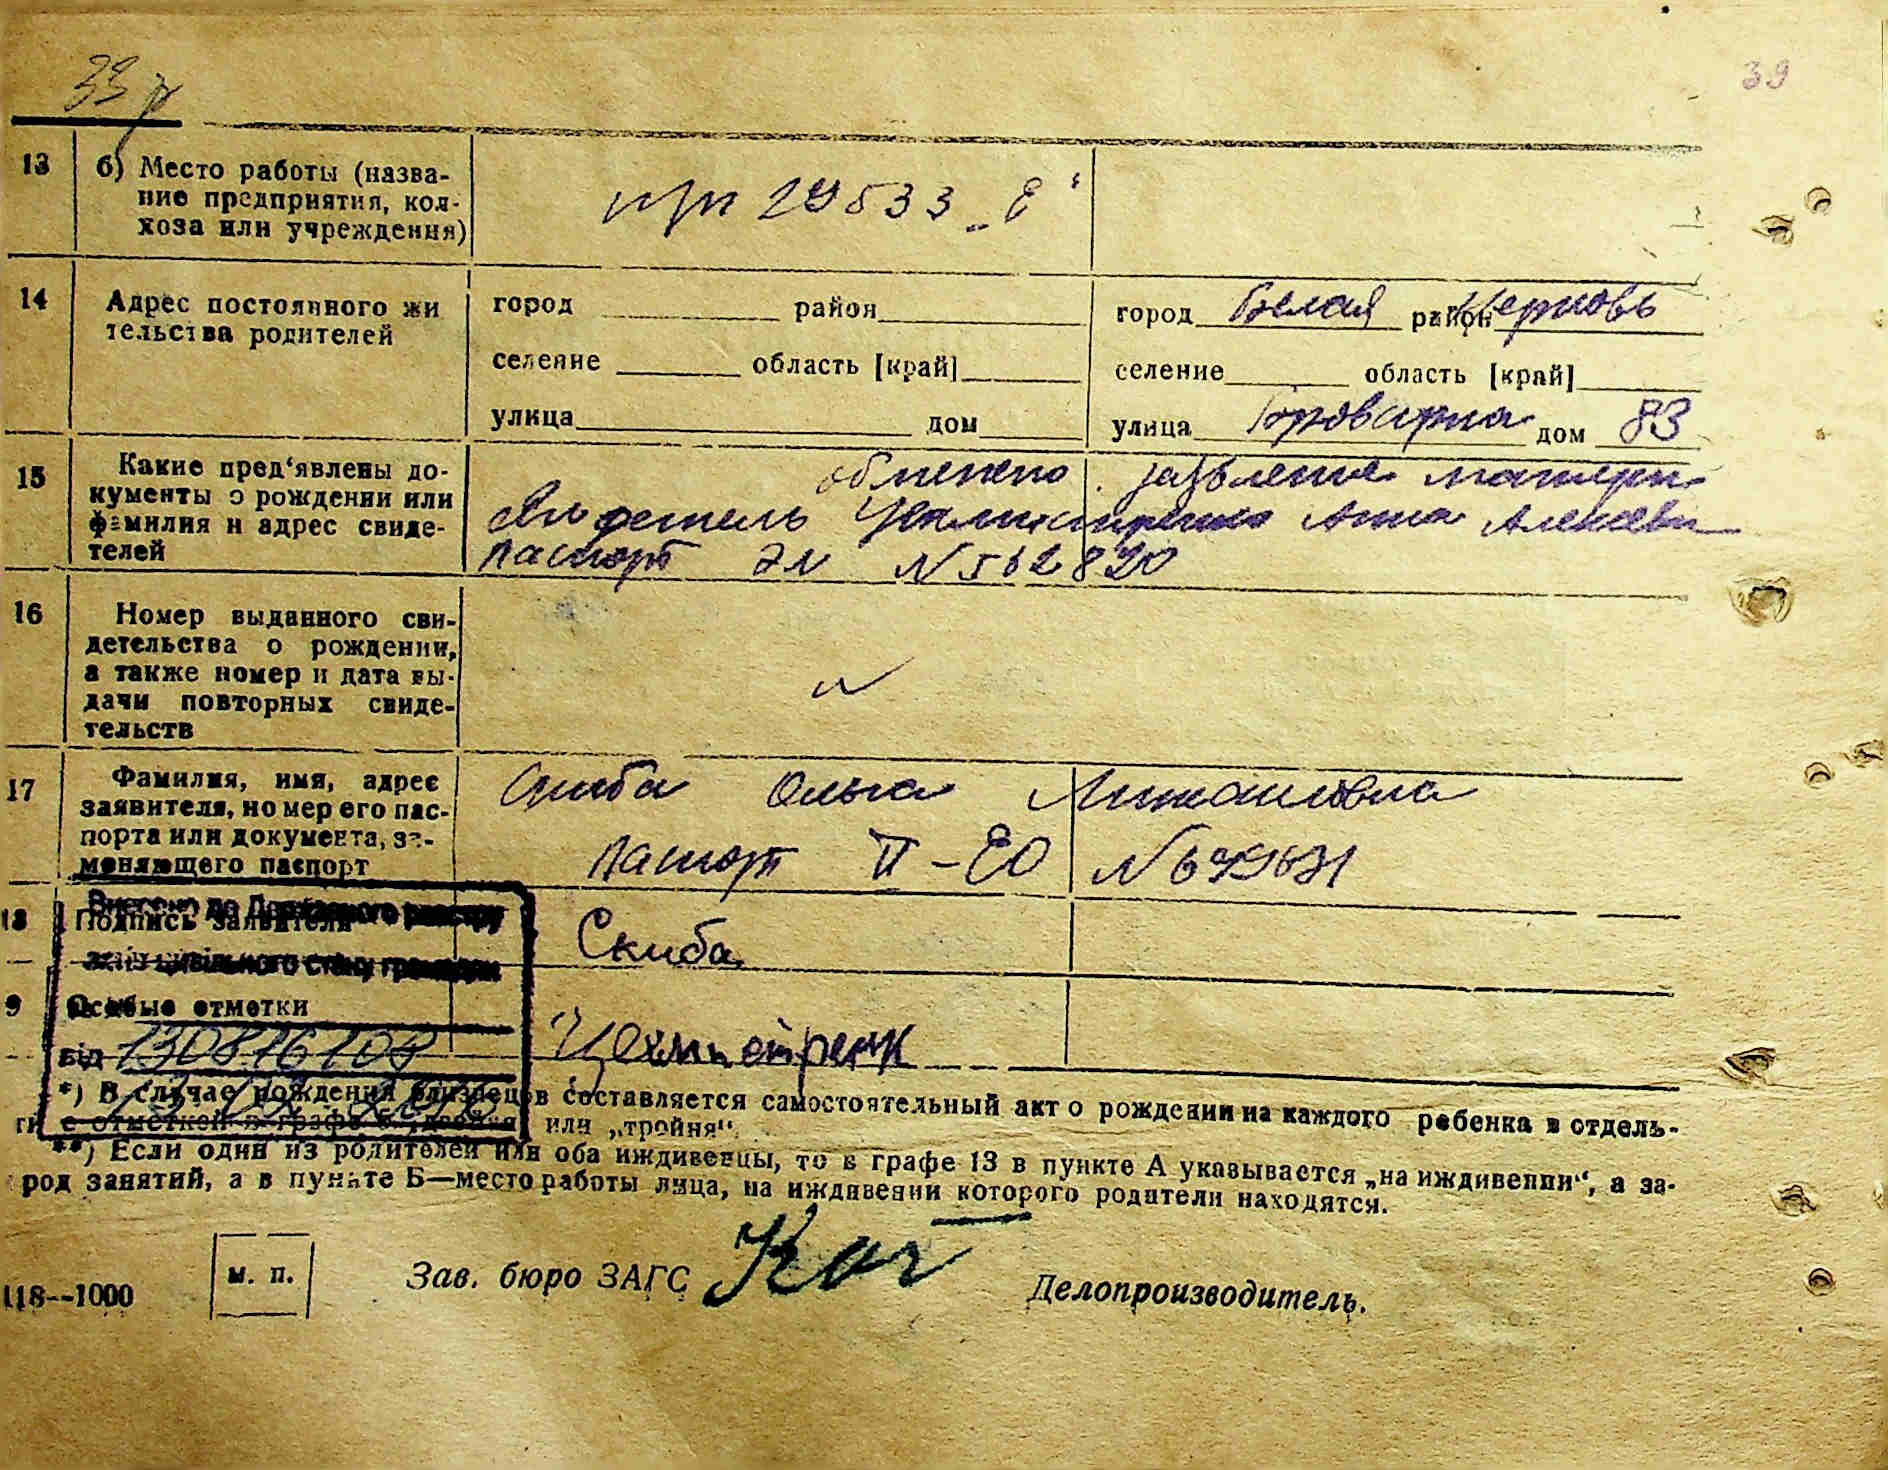 39
13 б) Место работы (назва-
ние предприятия, кол-
хоза или учреждения)
п/п 29533 „Е“
14 Адрес постоянного жи
тельства родителей
город район
селение область [край]
улица дом
город Белая район Церковь
селение область [край]
улица дом 83
15 Какие пред‘явлены до-
кументы о рождении или
фамилия и адрес свиде-
телей
заявление матери
Свидетель Цехмистренко Анна Алексеевн
паспорт ЭМ N 562820
16 Номер выданного сви-
детельства о рождении,
а также номер и дата вы-
дачи повторных свиде-
тельств
17 Фамилия, имя, адрес
заявителя, номер его пас-
порта или документа, за-
меняющего паспорт
Скиба Ольга Михайловна
паспорт II-ЕО N
18 Подпись заявителя
Скиба
Внесено до Державного реєстру
актів цивільного стану громадян
9 Особые отметки
Цехмистренк
від
*) В случае рождения близнецов составляется самостоятельный акт о рождении на каждого ребенка в отдель-
с отметкой в графе или „тройня“.
**) Если один из родителей или оба иждивенцы, то в графе 13 в пункте А указывается „на иждивении“, а за-
род занятий, а в пункте Б—место работы лица, на иждивении которого родители находятся.
м. п.
Зав. бюро ЗАГС
Делопроизводитель.
118--1000